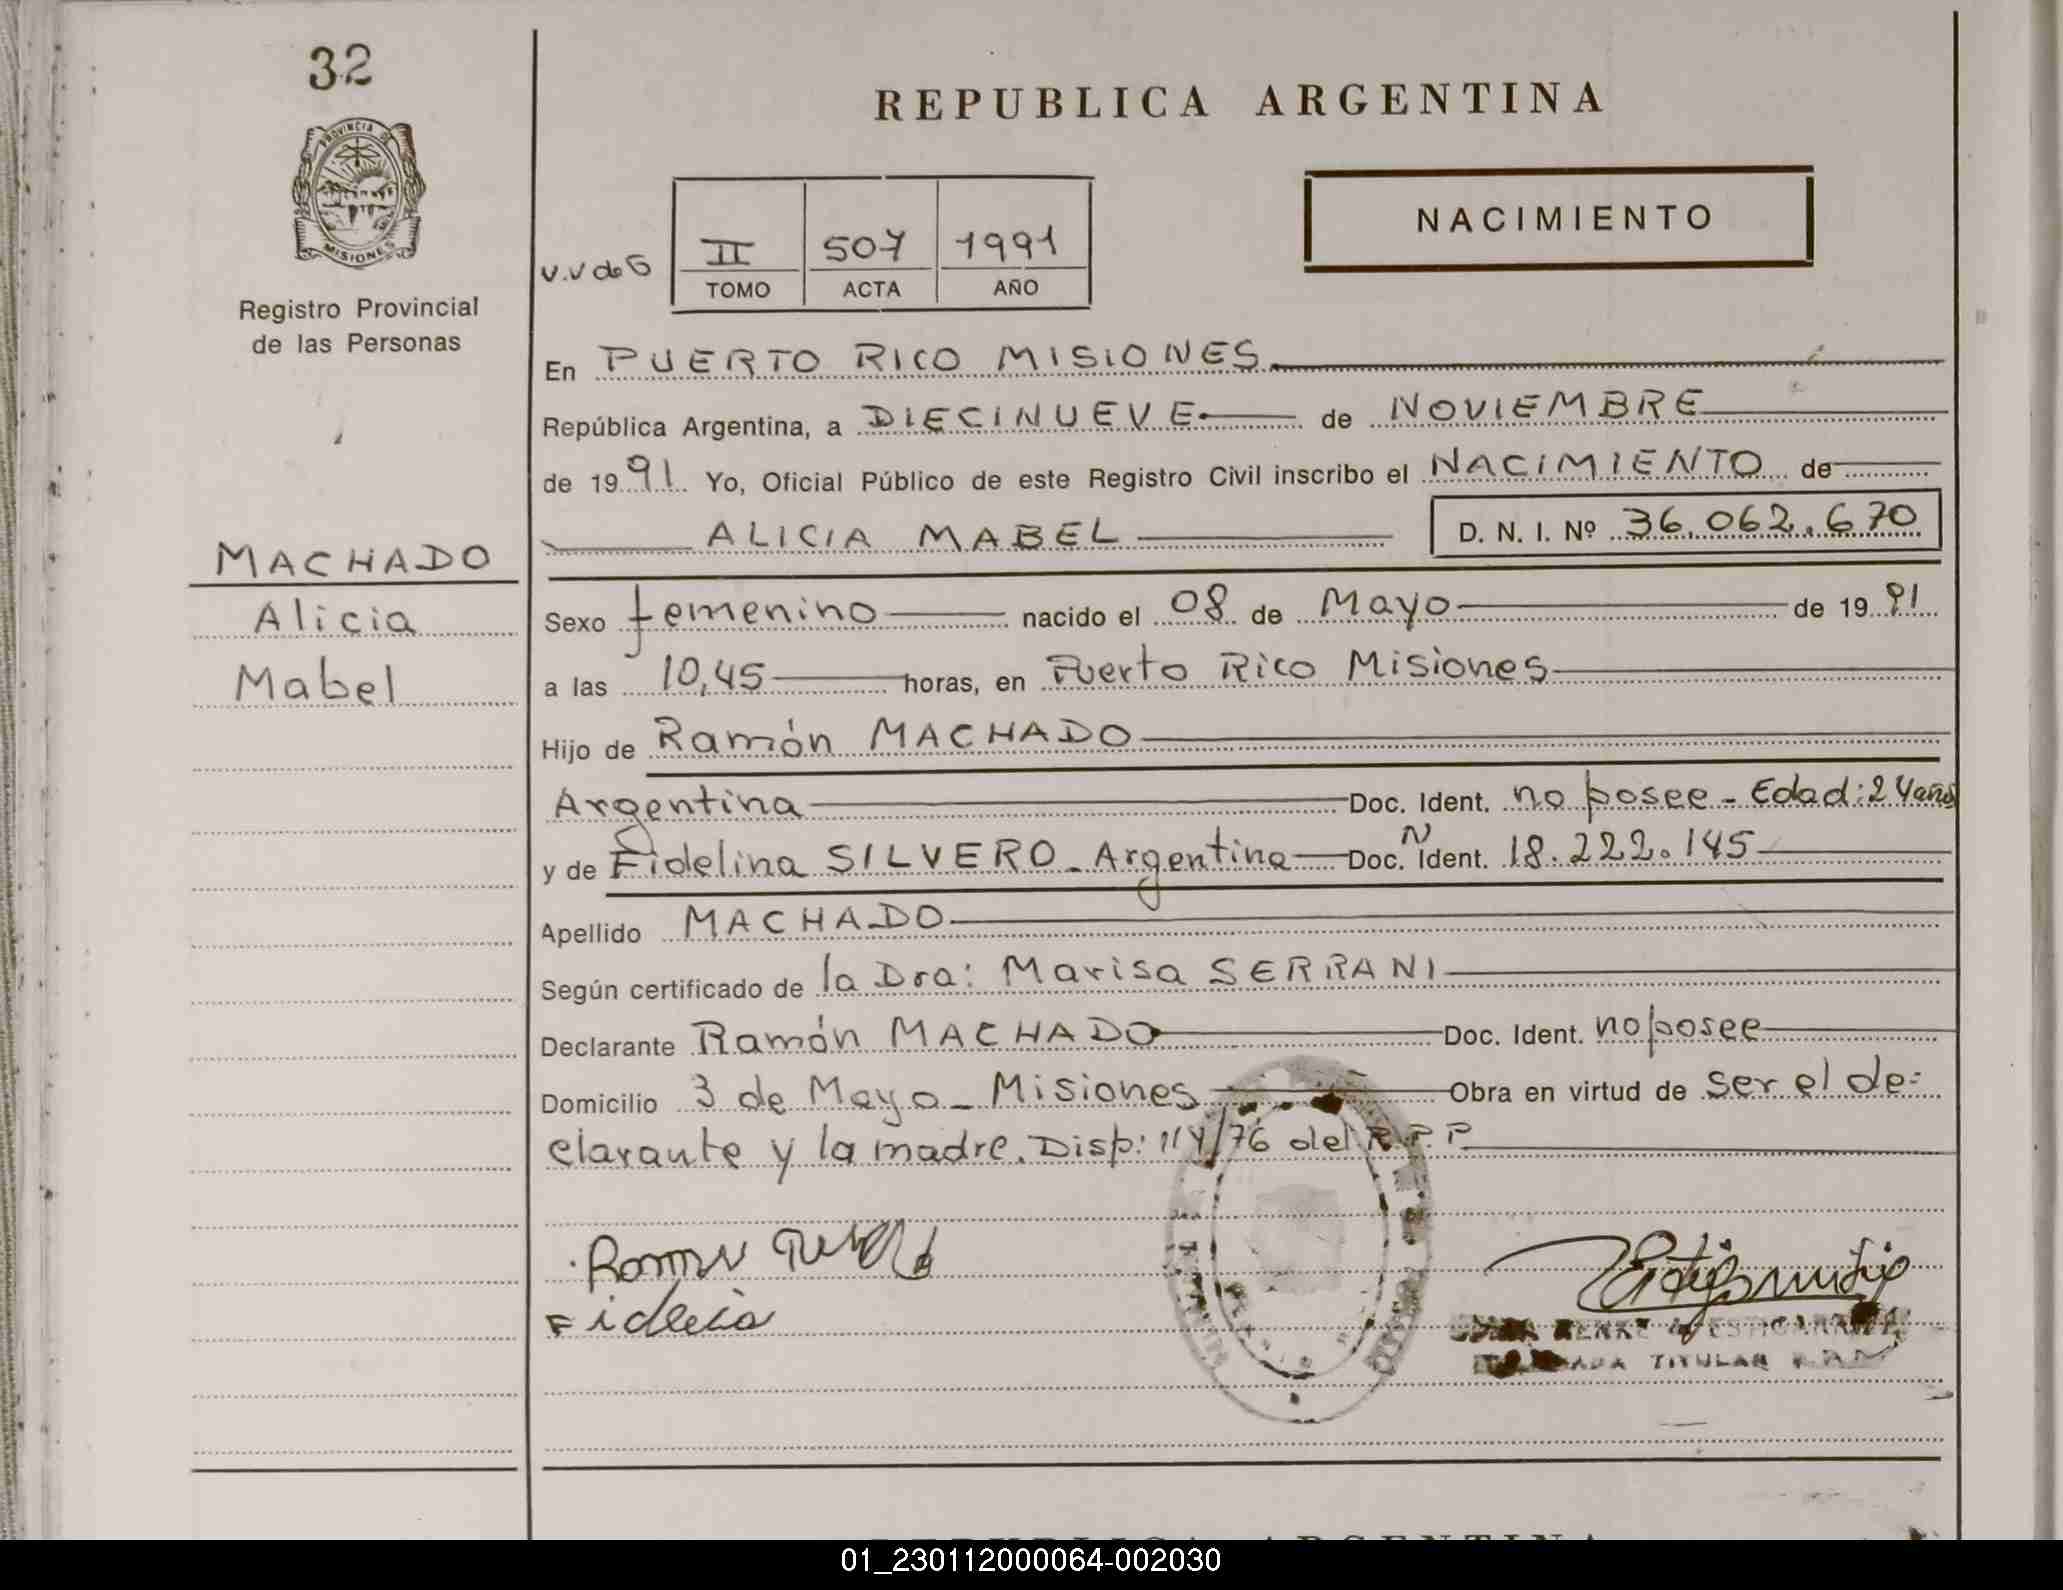 32
PROVINCIA DE
MISIONES
Registro Provincial
de las Personas
MACHADO
Alicia
Mabel
REPUBLICA ARGENTINA
NACIMIENTO
II 507 1991
TOMO ACTA AÑO
En PUERTO RICO MISIONES
República Argentina, a DIECINUEVE de NOVIEMBRE
de 1991 Yo, Oficial Público de este Registro Civil inscribo el NACIMIENTO de
ALICIA MABEL D. N. I. Nº 36.062.670
Sexo femenino nacido el 08 de Mayo de 1991
a las 10,45 horas, en Puerto Rico Misiones
Hijo de Ramón MACHADO
Argentina Doc. Ident. no posee - Edad: 24 años
y de Fidelina SILVERO - Argentina Doc. N Ident. 18.222.145
Apellido MACHADO
Según certificado de la Dra: Marisa SERRANI
Declarante Ramón MACHADO Doc. Ident. no posee
Domicilio 3 de Mayo - Misiones Obra en virtud de ser el de=
clarante y la madre. Disp: 114/76 del R.P.P
TITULAR
REPUBLICA ARGENTINA
01_230112000064-002030